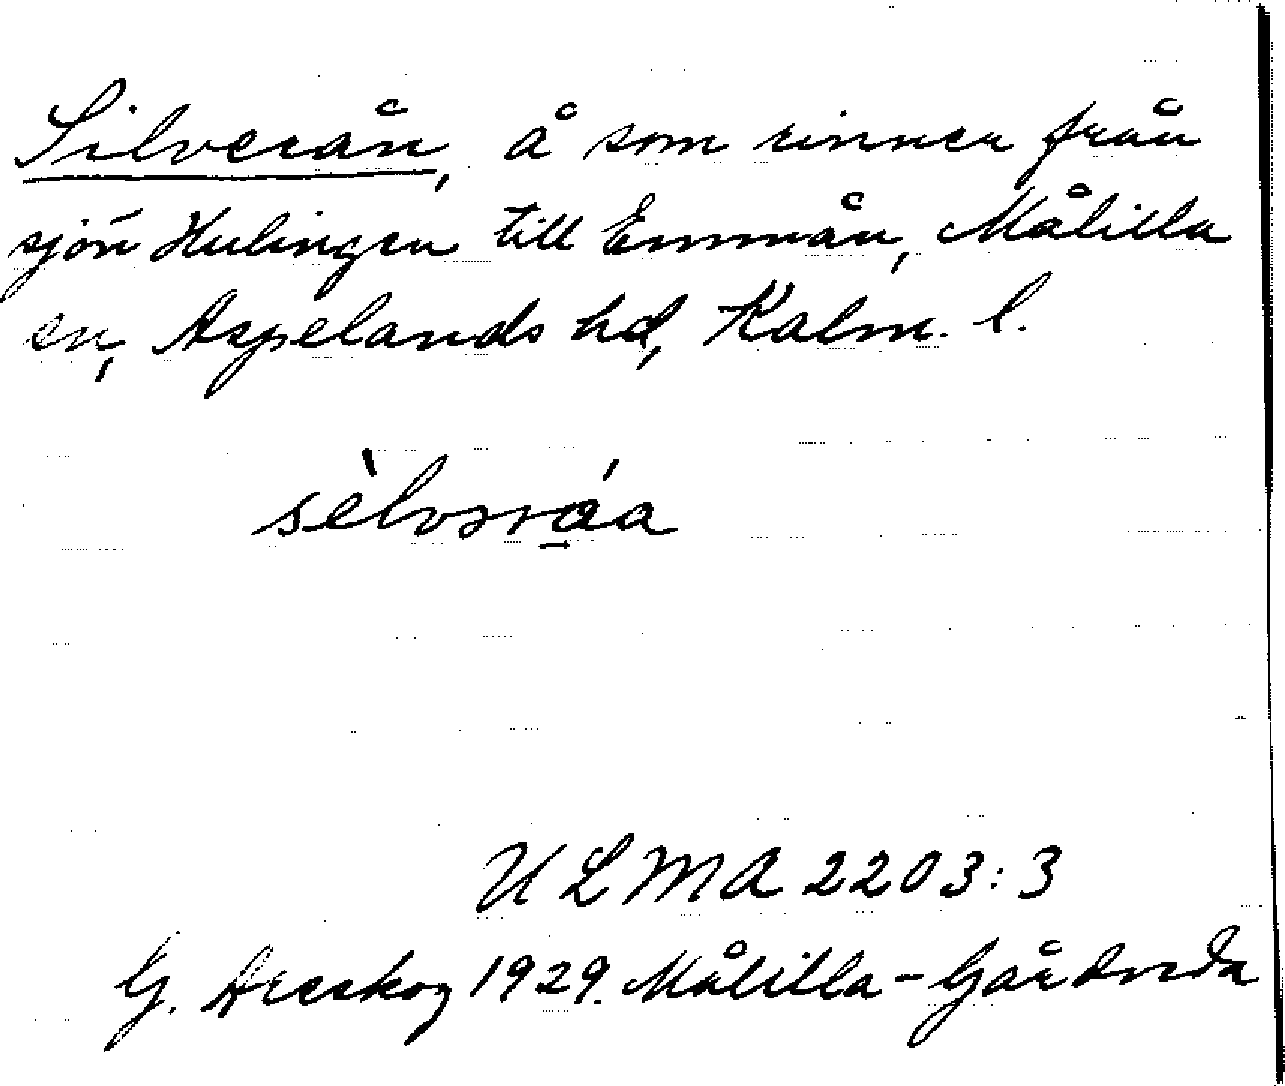 Silverån, å som rinner från
sjön Hulingen till Emmån, Målilla
sn, Aspelands hd, Kalm. l.
sèlvəráa
ULMA 2203:3
G. Areskog 1929. Målilla-Gårdveda